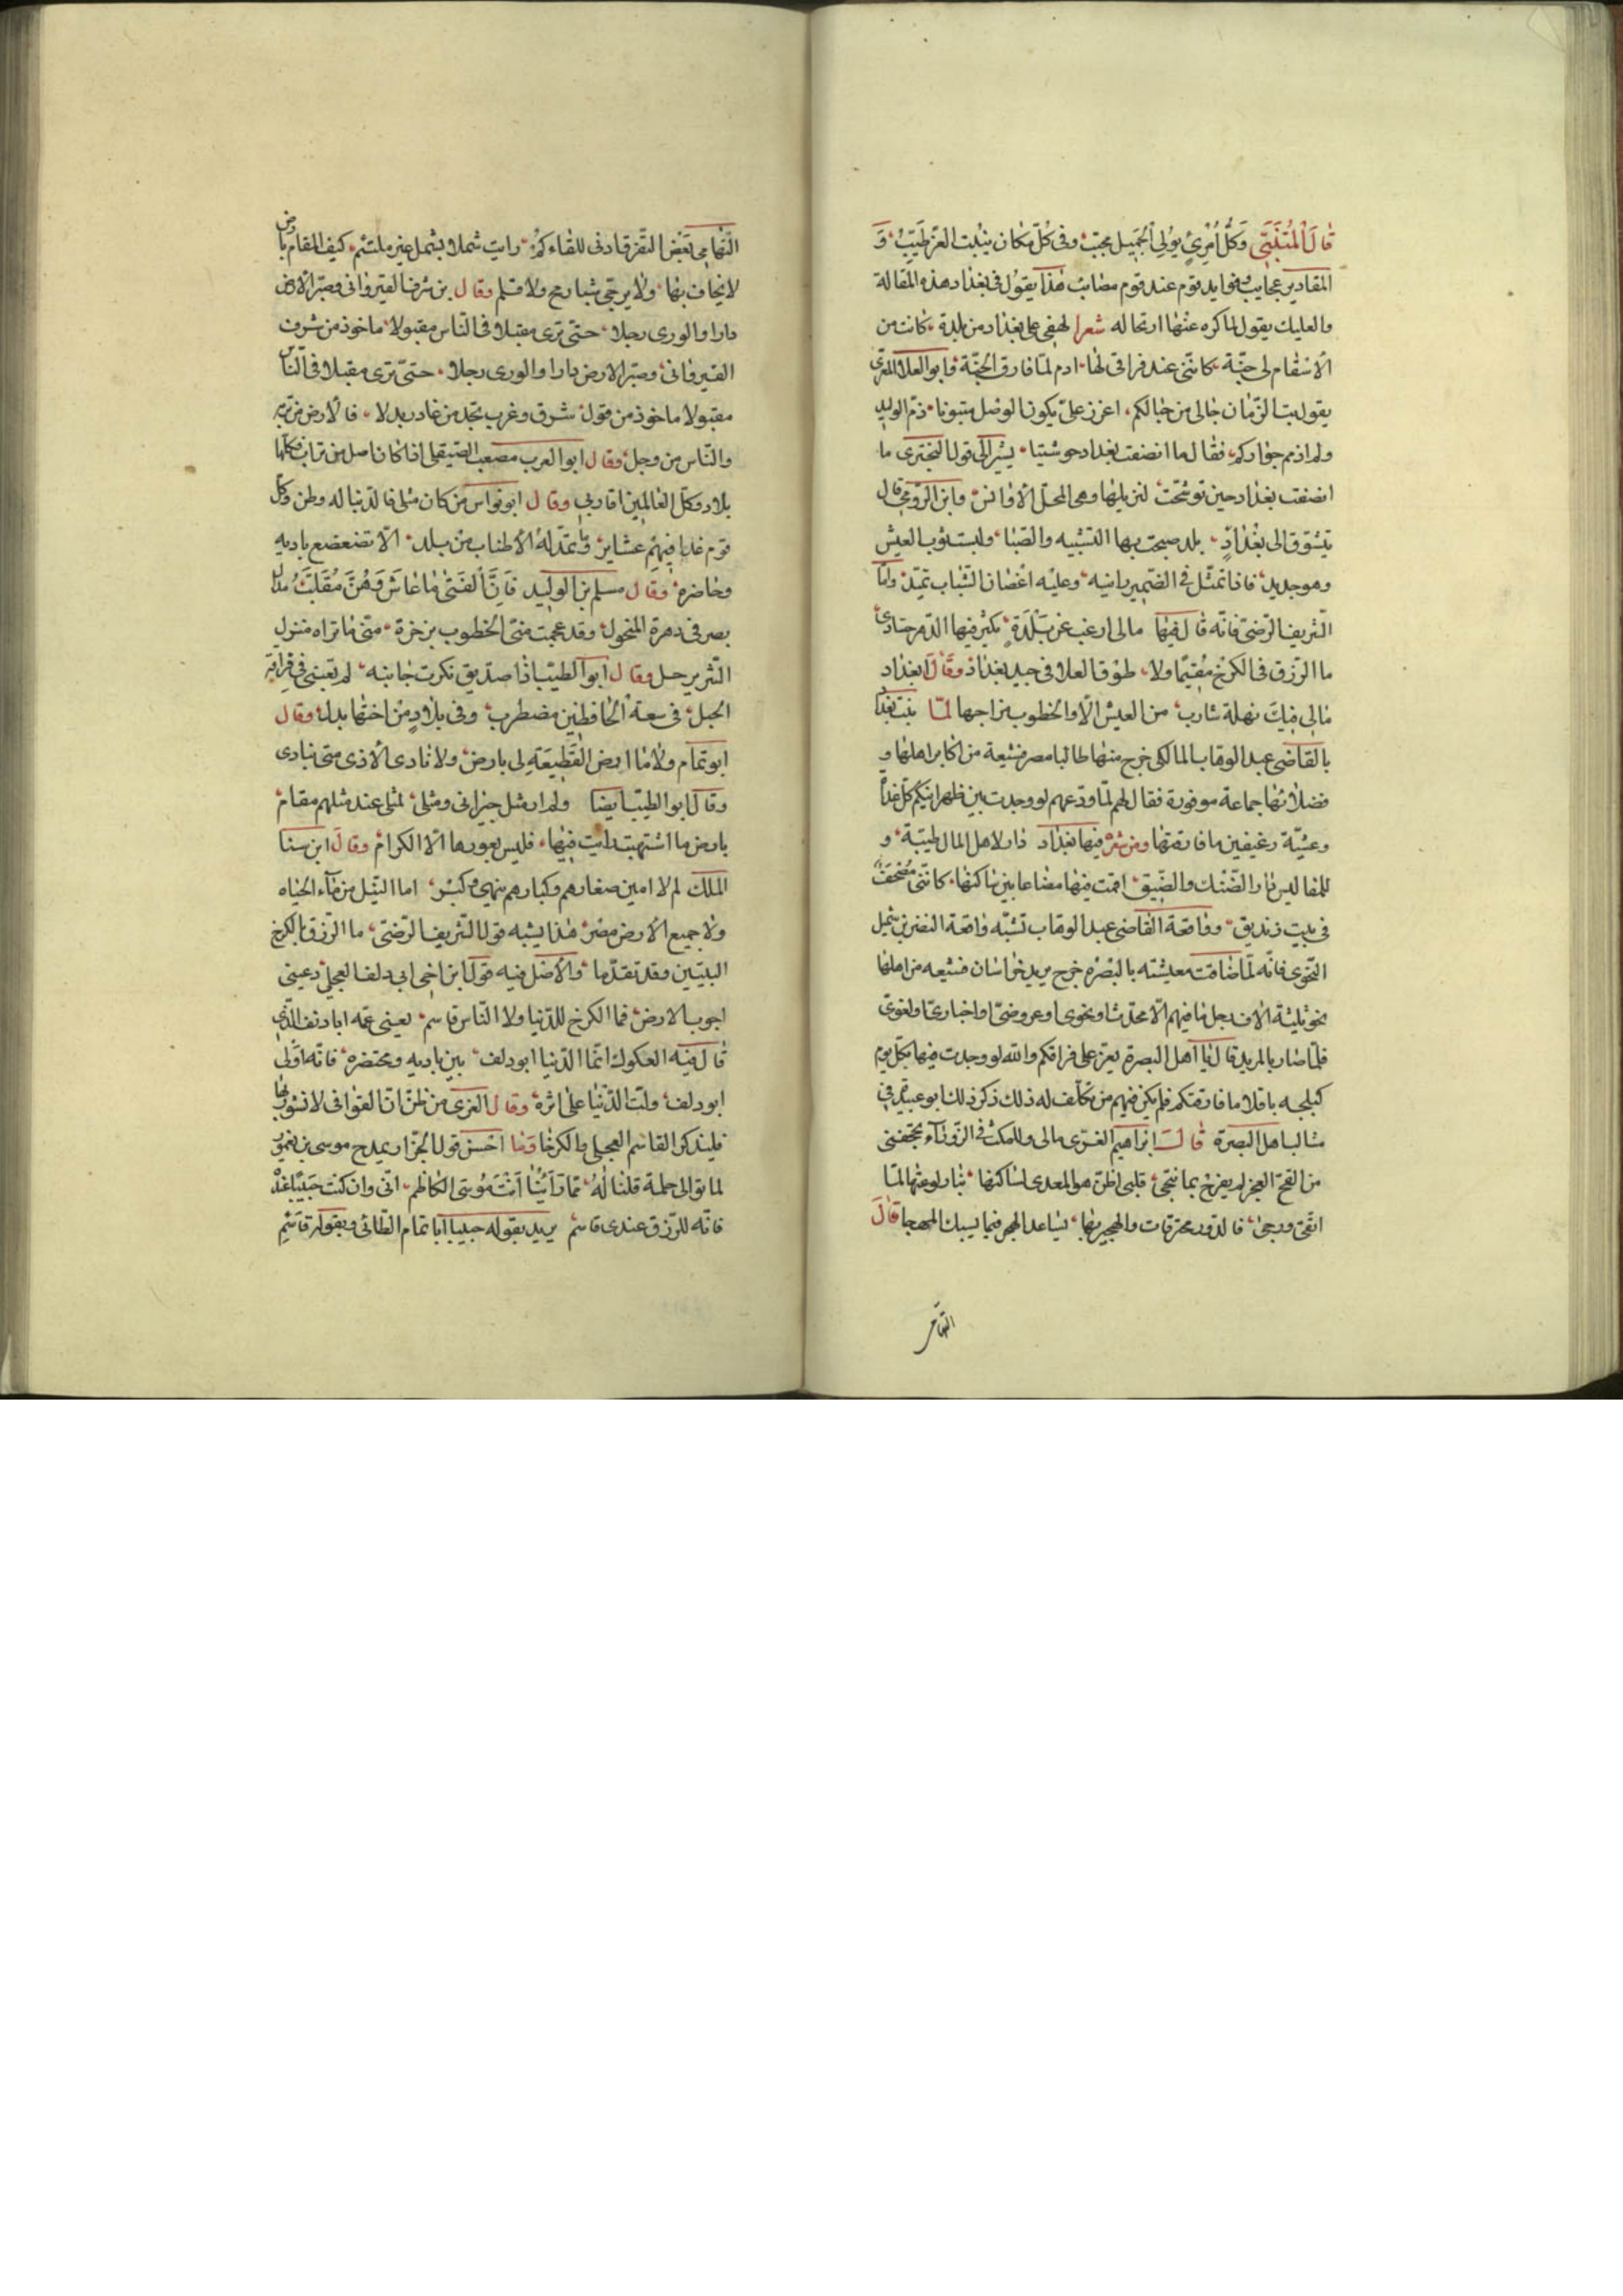 قال المتنبي وكل امرئ يولي الجميل محبب وفي كل مكان ينبت العز طيب و
المقادير عجايب فوايد قوم عند قوم مصائب هذا يقول في بغداد هذه المقالة
والعليك يقول لما كره عنها ارتحاله شعرا لهفي على بغداد من بلدة كانت من
الاسقام لي جنة كانني عند فراقي لها ادم لما فارق الجنة وابو العلا المعري
يقول بت الزمان حبالي من حبالكم اعزز علي بكون الوصل مبتوتا ذم الوليد
ولم اذمم جواركم فقال ما انصفت بغداد حوشيتا يشير الى قول البحتري ما
انصفت بغداد حين توحشت لنزيلها وهي المحل الآنس وابن الرومي قال
يتشوق الى بغداد بلد صحبت بها الشبيبة والصبا ولبست ثوب العيش
وهو جديد فاذا تمثل في الضمير رايته وعليه اغصان الشباب تميد واما
الشريف الرضي فانه قال فيها مالي ارغب عن بلدة يكثر فيها الدهر حسادي
ما الرزق في الكرخ مقيما ولا طوق العلا في جيد بغداد وقال ابغداد
مالي فيك نهلة شارب من العيش الا والخطوب مزاجها لما نبت بغداد
بالقاضي عبد الوهاب المالكي خرج منها طالبا مصر فشيعه من اكابر اهلها و
فضلائها جماعة موفورة فقال لهم لما ودعهم لو وجدت بين ظهرانيكم كل غداة
وعشية رغيفين ما فارقتها ومن شعره فيها بغداد دار لاهل المال طيبة و
للمفاليس دار الضنك والضيق اقمت فيها مضاعا بين ساكنها كانني مصحف
في بيت زنديق وواقعة القاضي عبد الوهاب تشبه واقعة النضر بن شميل
النحوي فانه لما ضاقت معيشته بالبصره خرج يريد خراسان فشيعه من اهلها
نحو ثلثة الاف رجل ما فيهم الا محدث او نحوي او عروضي او اخباري او لغوي
فلما صار بالمربد قال يا اهل البصرة يعز على فراقكم والله لو وجدت فيها بكل يوم
كيلجه باقلا ما فارقتكم فلم يكن فيهم من تكلف له ذلك ذكر ذلك ابو عبيدة في
مثالب اهل البصرة قال ابراهيم الغزي مالي وللمكث في الزوراء
من الفح قلبي اظن هو المعدى لساكنها نبار لوعتها لما
فالدور محترقات والهجير بها يساعد الهجر فيما يسبك المهجا قال
التهامي
التهامي بعض التفرق ادنى للقاءكم رايت شملا بشمل غير ملتئم كيف المقام بارض
لا يخاف بها ولا يرجى شبا رمح ولا قلم وقال بن شرف القيرواني وصير الارض
دارا والورى رجلا حتى ترى مقبلا في الناس مقبولا ماخوذ من شرف
القيرواني وصير الارض دارا والورى رجلا حتى ترى مقبلا في الناس
مقبولا ماخوذ من قول شرق وغرب تجد من غادر بدلا فالارض من تربه
والناس من رجل وقال ابو العرب مصعب الصيقلي اذا كان اصلي من تراب فكلها
بلادي وكل العالمين اقاربي وقال ابو نواس من كان مثلي فالدنيا له وطن وكل
قوم غدا فيهم عشاير وما تمد له الاطناب من بلد الا تضعضع باديه
وحاضره وقال مسلم بن الوليد فان الفتى ما عاش رهن مقلب
وقد عجمت مني الخطوب بن حرة متى ما تراه منزل
الشر يرحل وقال ابو الطيب اذا صديق نكرت جانبه لم تعيني في فراقه
الحيل في سعة الخافقين مضطرب وفي بلاد من اختها بدل وقال
ابو تمام ولا ما ارض القطيعة لي بارض ولا نادى الاذى متى بنادى
وقال ابو الطيب ايضا ولم ار مثل جيراني ومثلي لمثلي عند مثلهم مقام
بارض ما اشتهيت رايت فيها فليس يعوزها الا الكرام وقال ابن سنا
الملك اما النيل من ماء الحياه
ولا جميع الارض مصر هذا يشبه قول الشريف الرضي ما الرزق بالكرخ
البيتين وقد تقدما والاصل فيه قول ابن اخي ابي دلف العجلي دعيني
اجوب الارض فما الكرخ للدنيا ولا الناس قاسم يعني عمه ابا دلف الذي
قال فيه العكوك انما الدنيا ابو دلف بين باديه ومحتضره فاذا ولى
ابو دلف ولت الدنيا على اثره وقال الغزي من ظن ان القوافي لا نشوب لها
فليذكر القاسم العجلي والكرخا وما احسن قول الجزار يمدح موسى بن يغمور
لما توالى حملة قلنا له مما راينا انت موسى الكاظم اني وان كنت حبيبا عنده
فانه للرزق عندي قاسم يريد بقوله حبيبا ابا تمام الطائي وبقوله قاسم